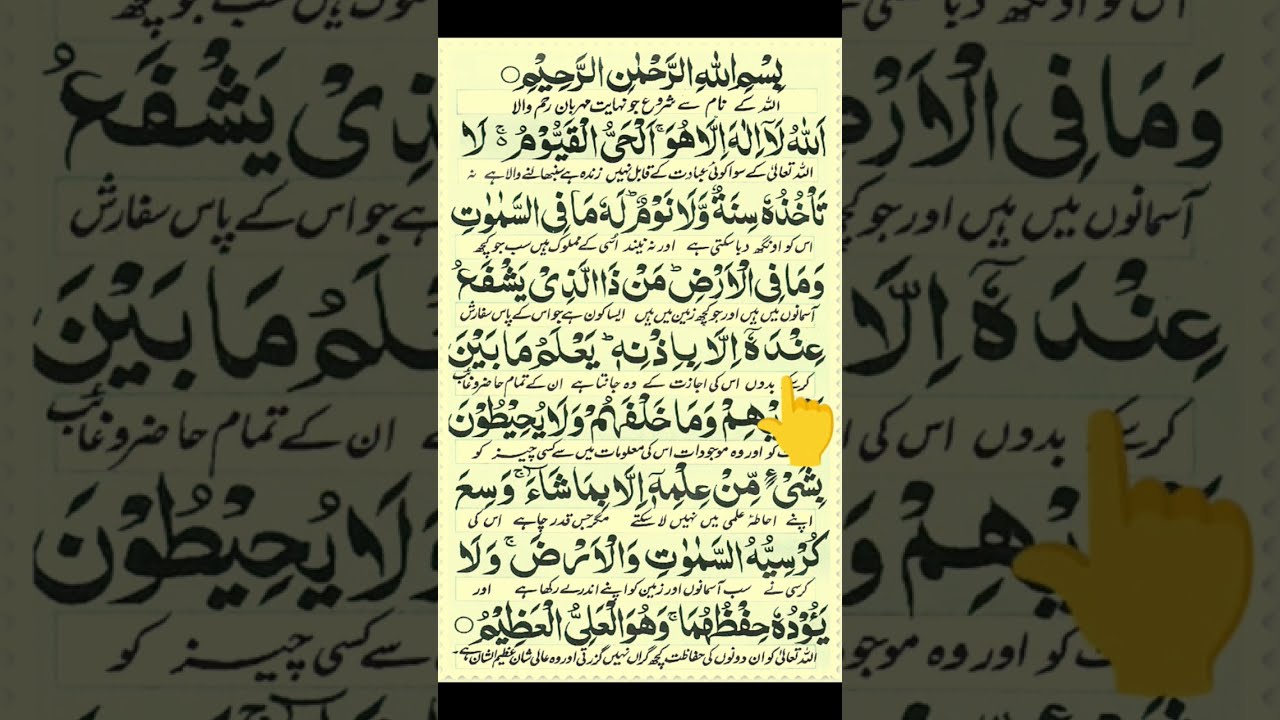 بِسْمِ اللهِ الرَّحْمٰنِ الرَّحِيْمِ
اللہ کے نام سے شروع جو نہایت مہربان رحم والا
اَللهُ لَآ اِلٰهَ اِلَّا هُوَ ۚ اَلْحَيُّ الْقَيُّوْمُ ۚ لَا
اللہ تعالیٰ کے سوا کوئی عبادت کے قابل نہیں زندہ ہے سنبھالنے والا ہے نہ
تَاْخُذُهٗ سِنَةٌ وَّلَا نَوْمٌ ؕ لَهٗ مَا فِى السَّمٰوٰتِ
اس کو اونگھ دبا سکتی ہے اور نہ نیند اُسی کے مملوک ہیں سب جو کچھ
وَمَا فِى الْاَرْضِ ؕ مَنْ ذَا الَّذِىْ يَشْفَعُ
آسمانوں میں ہیں اور جو کچھ زمین میں ہیں ایسا کون ہے جو اس کے پاس سفارش
عِنْدَهٗۤ اِلَّا بِاِذْنِهٖ ؕ يَعْلَمُ مَا بَيْنَ
کرسکے بدوں اس کی اجازت کے وہ جانتا ہے ان کے تمام حاضر وغائب
هِمْ وَمَا خَلْفَهُمْ وَلَا يُحِيْطُوْنَ
کو اور وہ موجودات اس کی معلومات میں سے کسی چیز کو
بِشَىْءٍ مِّنْ عِلْمِهٖۤ اِلَّا بِمَا شَآءَ ۚ وَسِعَ
اپنے احاطۂ علمی میں نہیں لا سکتے مگر جس قدر چاہے اس کی
كُرْسِيُّهُ السَّمٰوٰتِ وَالْاَرْضَ ۚ وَلَا
کرسی نے سب آسمانوں اور زمین کو اپنے اندر لے رکھا ہے اور
يَـُٔوْدُهٗ حِفْظُهُمَا ۚ وَهُوَ الْعَلِىُّ الْعَظِيْمُ
اللہ تعالیٰ کو ان دونوں کی حفاظت کچھ گراں نہیں گزرتی اور وہ عالی شان عظیم الشان ہے